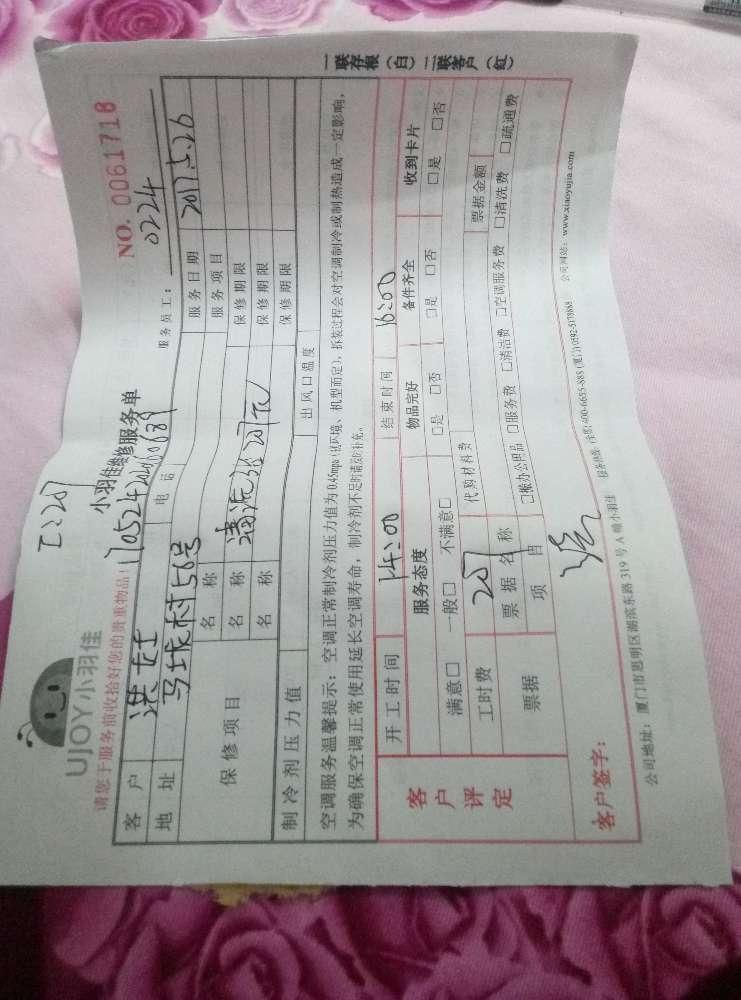 工:207
UJOY小羽佳
小羽佳维修服务单
NO. 0061718
请您于服务前收拾好您的贵重物品!
服务员工: 0224
客户 洪女士 电话 服务日期 2017.5.26
地址 马垅村58号 服务项目
保修项目 名称 保修期限
名称 清洗 207元 保修期限
名称 保修期限
制冷剂压力值 出风口温度
空调服务温馨提示: 空调正常制冷剂压力值为0.45mpa(因环境、机型而定), 拆装过程会对空调制冷或制热造成一定影响,
为确保空调正常使用延长空调寿命, 制冷剂不足时请及时补充。
一联存根(白)二联客户(红)
客户评定
开工时间 14:00 结束时间 16:00
服务态度 物品完好 备件齐全 收到卡片
满意□ 一般□ 不满意□ □是 □否 □是 □否 □是 □否
工时费 207 代购材料费 票据金额
票据 票据名称 项目
□服务费 □清洁费 □空调服务费 □清洗费 □疏通费
客户签字:
公司地址: 厦门市思明区湖滨东路319号A幢小羽佳 服务热线: (全国)400-6655-888 (厦门)0592-5178888 公司网站: www.xiaoyujia.com